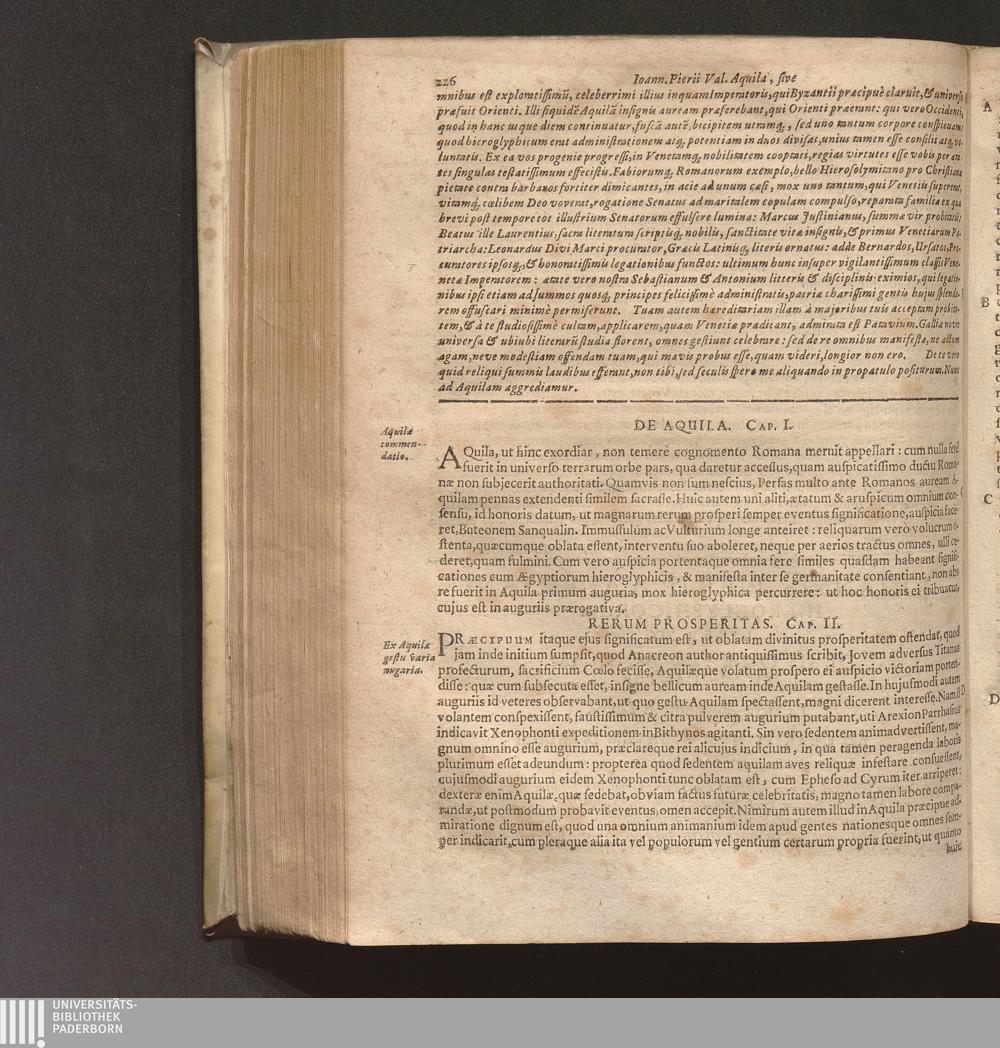 226
Ioann. Pierii Val. Aquila, sive
mnibus est exploratissimũ, celeberrimi illius inquam Imperatoris, qui Byzantii præcipuè claruit, & universo
præfuit Orienti. Illi siquidẽ Aquilã insignis auream præferebant, qui Orienti præerant: qui vero Occidenti,
quod in hanc usque diem continuatur, fuscã autẽ, bicipitem utramq;, sed uno tantum corpore conspicuam:
quod hieroglyphicum erat administrationem atq; potentiam in duos divisas, unius tamen esse consilii atq; vo-
luntatis. Ex ea vos progenie progressi, in Venetamq; nobilitatem cooptati, regias virtutes esse vobis per æta-
tes singulas testatissimum effecistis. Fabiorumq; Romanorum exemplo, bello Hierosolymitano pro Christiana
pietate contra barbaros fortiter dimicantes, in acie ad unum cæsi, mox uno tantum, qui Venetiis supererat,
vitamq; cælibem Deo voverat, rogatione Senatus ad maritalem copulam compulso, reparata familia ex qua
brevi post tempore tot illustrium Senatorum effulsere lumina: Marcus Justinianus, summæ vir probitatis:
Beatus ille Laurentius, sacra literatura scriptisq; nobilis, sanctitate vitæ insignis, & primus Venetiarum Pa-
triarcha: Leonardus Divi Marci procurator, Græcis Latinisq; literis ornatus: adde Bernardos, Ursatos, Pro-
curatores ipsosq;, & honoratissimis legationibus functos: ultimum hunc insuper vigilantissimum classis Vene-
netæ Imperatorem: ætate vero nostra Sebastianum & Antonium litteris & disciplinis eximios, qui legatio-
nibus ipsi etiam ad summos quosq; principes felicissimè administratis, patriæ charissimi gentis hujus splendo-
rem offuscari minimè permiserunt. Tuam autem hæreditariam illam à majoribus tuis acceptam probita-
tem, & à te studiosissimè cultam, applicarem, quam Venetiæ prædicant, admirata est Patavium, Gallia novit
universa & ubiubi literarũ studia florent, omnes gestiunt celebrare: sed de re omnibus manifesta, ne actum
agam, neve modestiam offendam tuam, qui mavis probus esse, quam videri, longior non ero. De te vero
quid reliqui summis laudibus efferant, non tibi, sed seculis spero me aliquando in propatulo positurum. Nunc
ad Aquilam aggrediamur.
DE AQUILA. CAP. I.
Aquilæ
commen-
datio.
AQuila, ut hinc exordiar, non temerè cognomento Romana meruit appellari: cum nulla ferè
fuerit in universo terrarum orbe pars, qua daretur accessus, quam auspicatissimo ductu Roma-
næ non subjecerit authoritati. Quamvis non sum nescius, Persas multo ante Romanos auream A-
quilam pennas extendenti similem sacrasse. Huic autem uni aliti, ætatum & aruspicum omnium con-
sensu, id honoris datum, ut magnarum rerum prosperi semper eventus significatione, auspicia face-
ret, Buteonem Sanqualin. Immussulum ac Vulturium longe anteiret: reliquarum verò volucrum o-
stenta, quæcumque oblata essent, interventu suo aboleret, neque per aerios tractus omnes, ulli ce-
deret, quam fulmini. Cum vero auspicia portentaque omnia fere similes quasdam habeant signifi-
cationes cum Ægyptiorum hieroglyphicis, & manifesta inter se germanitate consentiant, non abs
re fuerit in Aquila primum auguria, mox hieroglyphica percurrere: ut hoc honoris ei tribuatur,
cujus est in auguriis prærogativa.
RERUM PROSPERITAS. CAP. II.
Ex Aquilæ
gestu varia
augaria.
PRÆCIPUUM itaque ejus significatum est, ut oblatam divinitus prosperitatem ostendat, quod
jam inde initium sumpsit, quod Anacreon author antiquissimus scribit, Jovem adversus Titanas
profecturum, sacrificium Cœlo fecisse, Aquilæque volatum prospero ei auspicio victoriam porten-
disse: quæ cum subsecuta esset, insigne bellicum auream inde Aquilam gestasse. In hujusmodi autem
auguriis id veteres observabant, ut quo gestu Aquilam spectassent, magni dicerent interesse. Nam si
volantem conspexissent, faustissimum & citra pulverem augurium putabant, uti Arexion Parrhasius
indicavit Xenophonti expeditionem in Bithynos agitanti. Sin vero sedentem animadvertissent, ma-
gnum omnino esse augurium, præclareque rei alicujus indicium, in qua tamen peragenda laboris
plurimum esset adeundum: propterea quod sedentem aquilam aves reliquæ infestare consuessent,
cujusmodi augurium eidem Xenophonti tunc oblatam est, cum Epheso ad Cyrum iter arriperet:
dexteræ enim Aquilæ, quæ sedebat, obviam factus futuræ celebritatis, magno tamen labore compa-
randæ, ut postmodum probavit eventus, omen accepit. Nimirum autem illud in Aquila præcipue ad-
miratione dignum est, quod una omnium animanium idem apud gentes nationesque omnes sem-
per indicarit, cum pleraque alia ita vel populorum vel gentium certarum propria fuerint, ut quanto
huic
A
B
C
D
UNIVERSITÄTS-
BIBLIOTHEK
PADERBORN